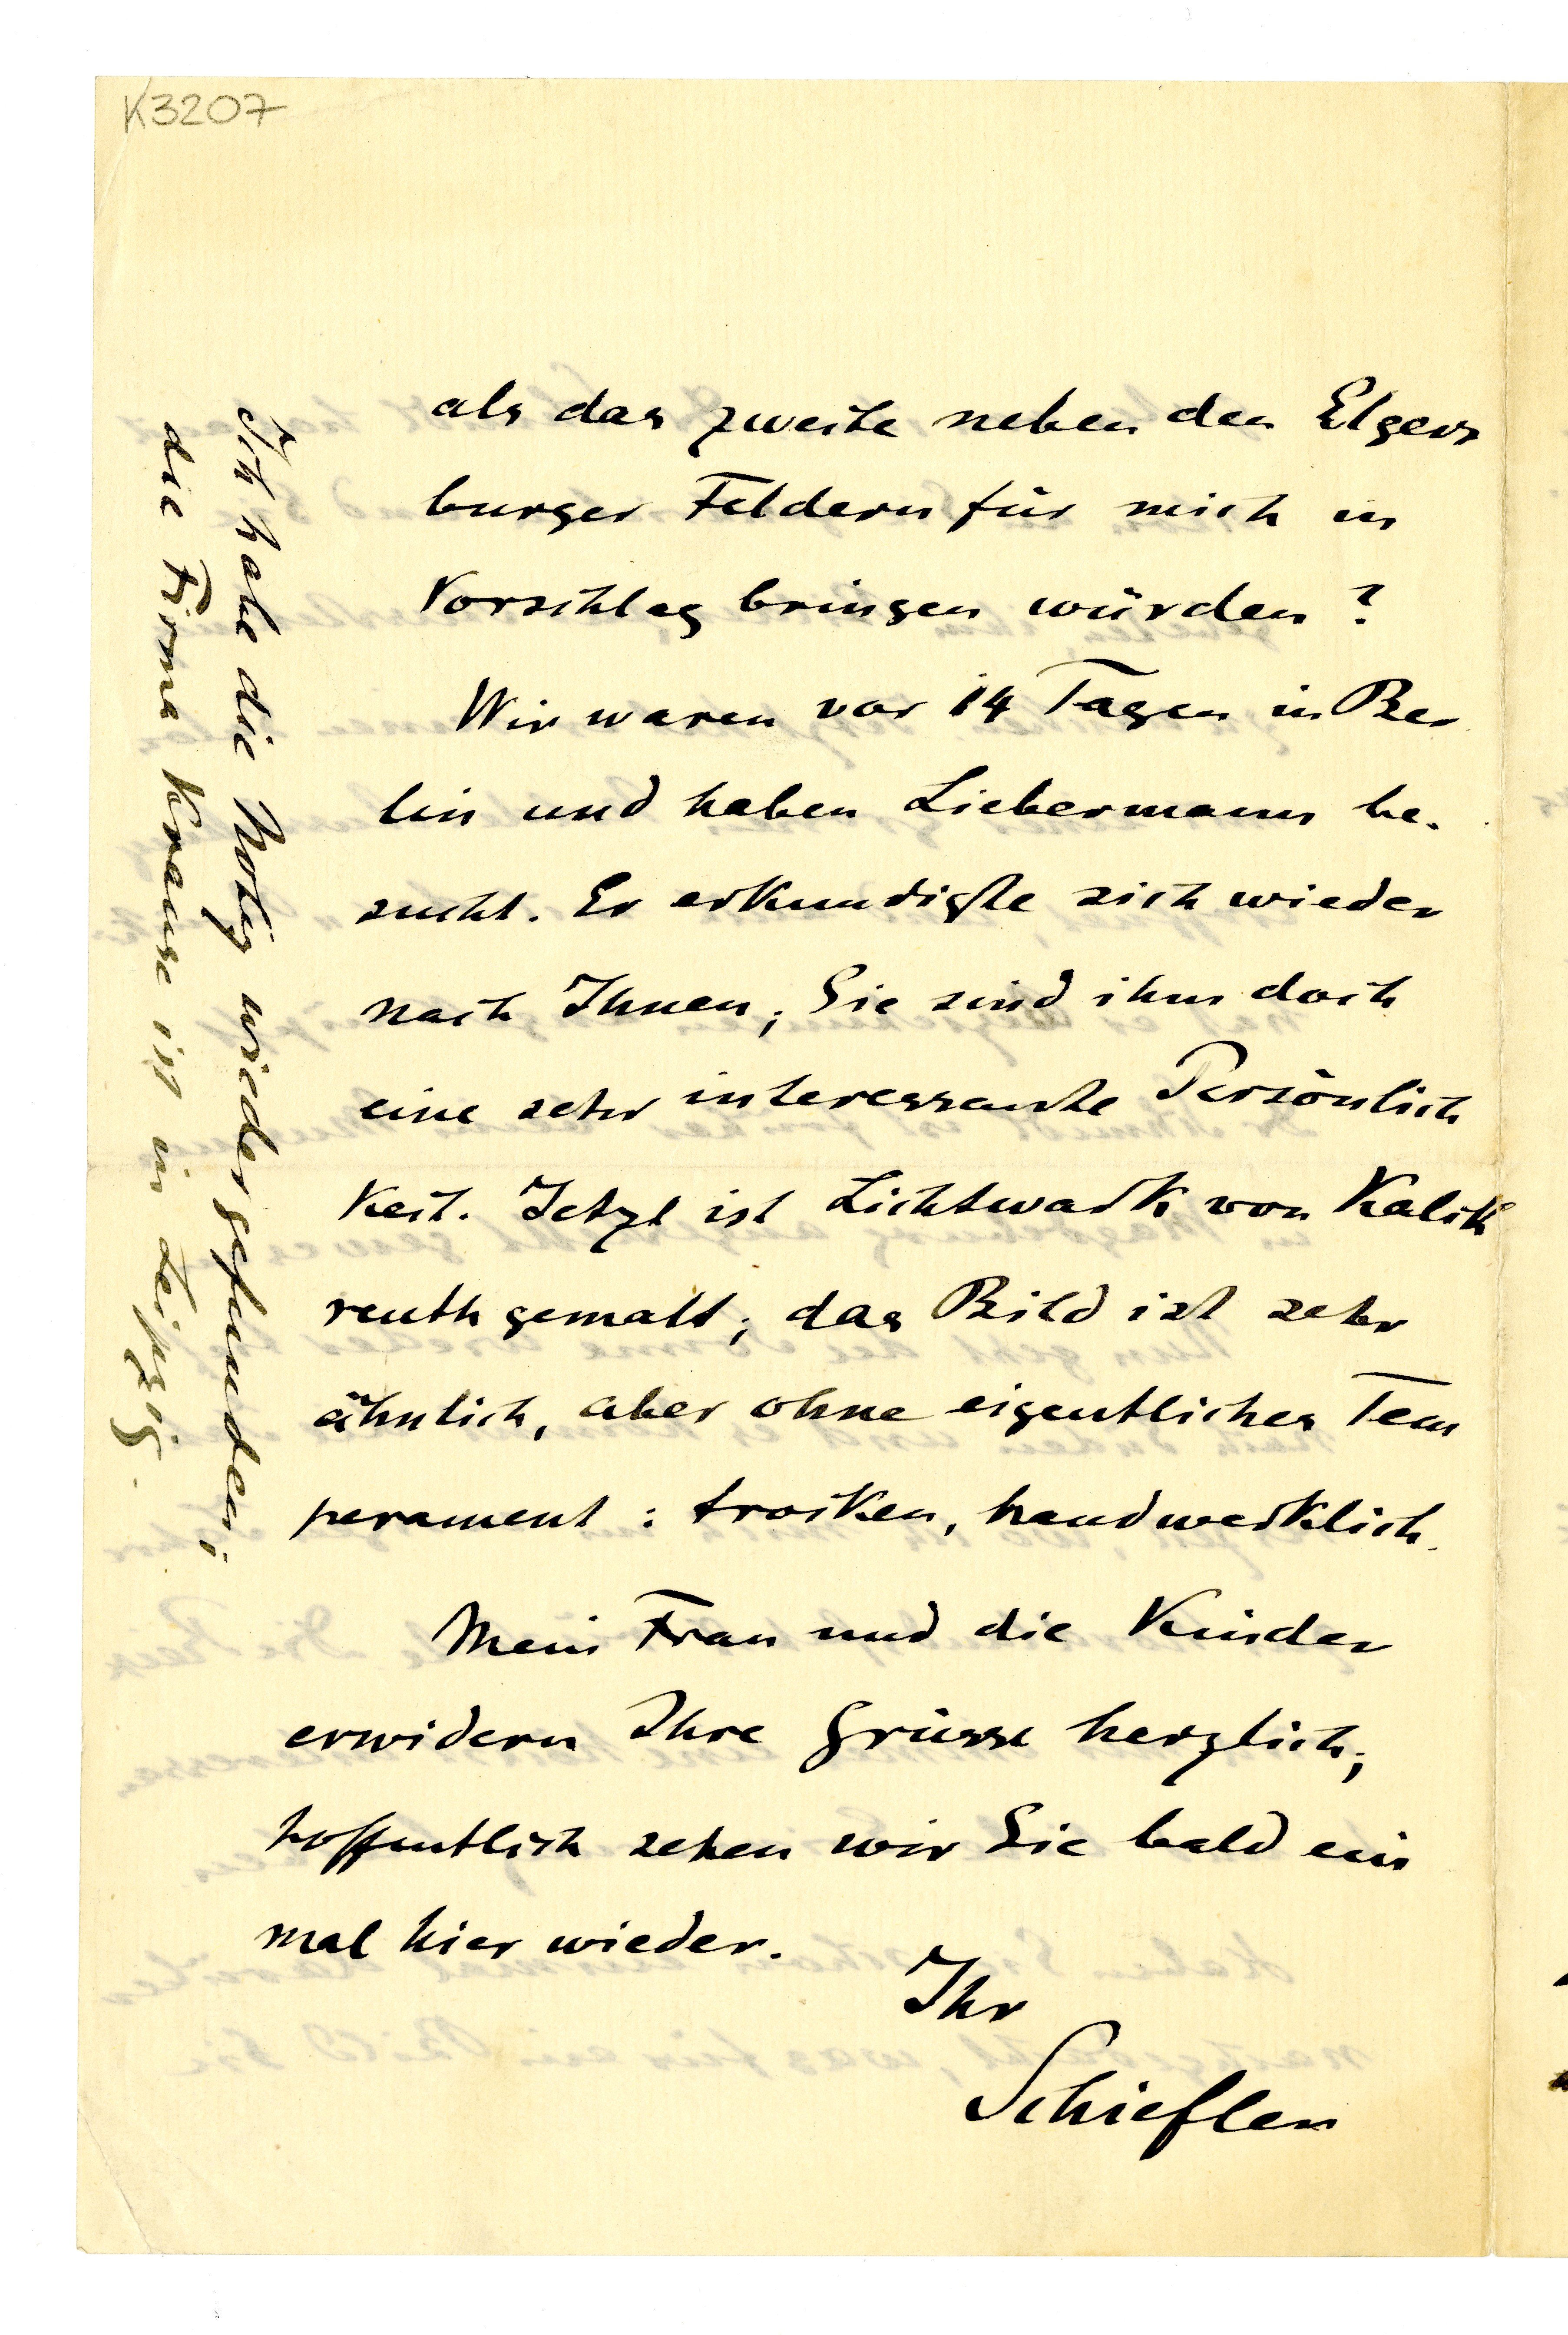 K3207
als das zweite neben den Elgers
burger Feldern für mich in
Vorschlag bringen würden?
Wir waren vor 14 Tagen in Ber
lin und haben Liebermann be-
sucht. Er erkundigte sich wieder
nach Ihnen; Sie sind ihm doch
eine sehr interessante Persönlich
keit. Jetzt ist Lichtwark von Kalck
reuth gemalt; das Bild ist sehr
ähnlich, aber ohne eigentliches Tem
perament: trocken, handwerklich.
Mein Frau und die Kinder
erwidern Ihre Grüsse herzlich;
hoffentlich sehen wir Sie bald ein
mal hier wieder.
Ihr
Schiefler
Ich habe die Notiz wiedergefunden:
die Firma Krause ist in Leipzig.